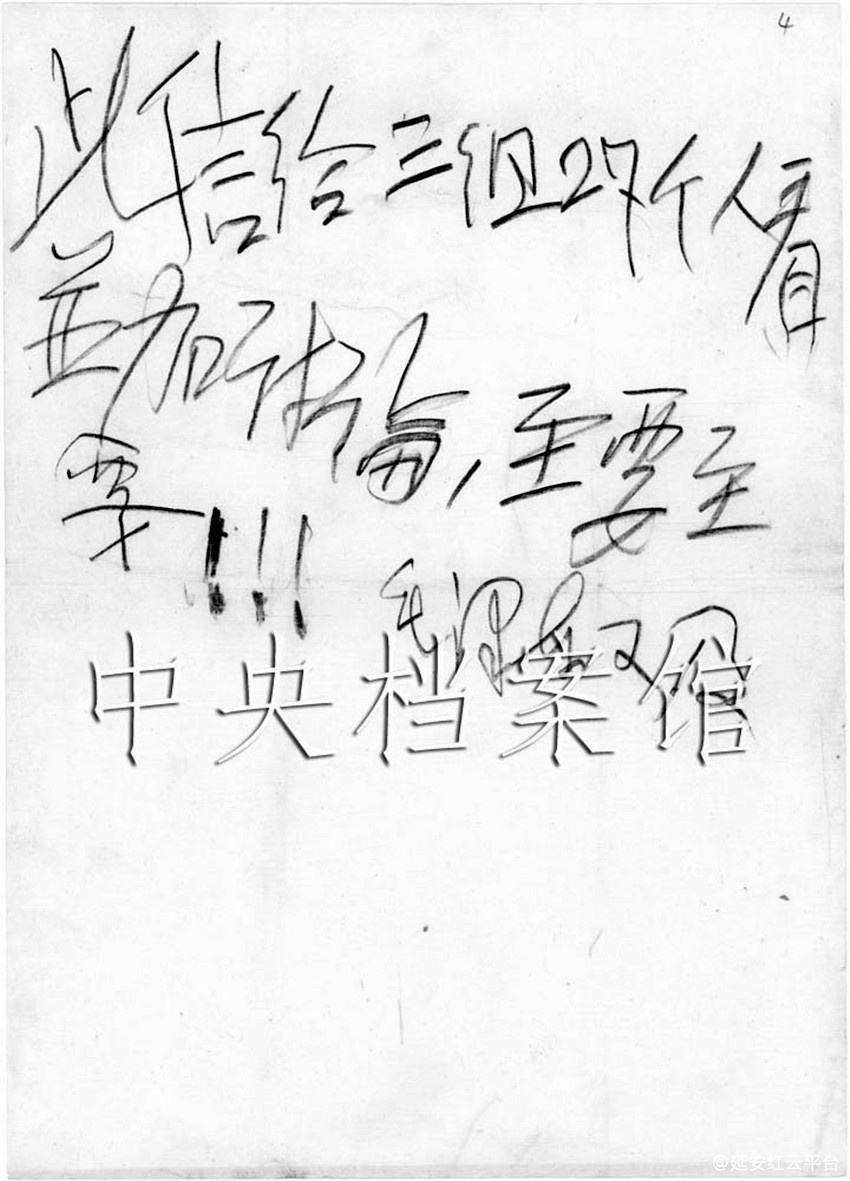 4
此信给三组27个人看
並加以讨論,至要至
要!!!
毛泽东 又及
中央档案馆
@延安红云平台